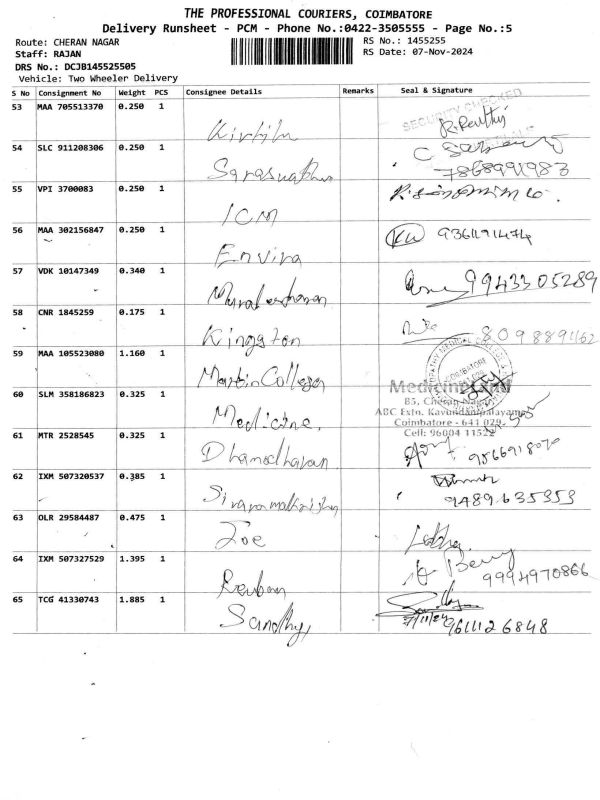 THE PROFESSIONAL COURIERS, COIMBATORE
Delivery Runsheet - PCM - Phone No.:0422-3505555 - Page No.:5
Route: CHERAN NAGAR
RS No.: 1455255
Staff: RAJAN
RS Date: 07-Nov-2024
DRS No.: DCJB145525505
Vehicle: Two Wheeler Delivery
S No Consignment No Weight PCS Consignee Details Remarks Seal & Signature
53 MAA 705513370 0.250 1
SECURITY CHECKED
Kirthi
54 SLC 911208306 0.250 1
7868991983
55 VPI 3700083 0.250 1
ICM
56 MAA 302156847 0.250 1
9361191474
Envira
57 VDK 10147349 0.340 1
9943305289
58 CNR 1845259 0.175 1
Kingston
8098891162
59 MAA 105523080 1.160 1
Martin College
COIMBATORE
Medicin Land
60 SLM 358186823 0.325 1
85, Cheran Nagar
ABC Estn. Kavundanpalayam
Medicine,
Coimbatore - 641 029
61 MTR 2528545 0.325 1
Cell: 96004 11522
Dhamodharan
9566918070
62 IXM 507320537 0.385 1
9489635353
63 OLR 29584487 0.475 1
Joe
64 IXM 507327529 1.395 1
9994970866
Reuban
65 TCG 41330743 1.885 1
Sandhy,
7/11/24
9611126848